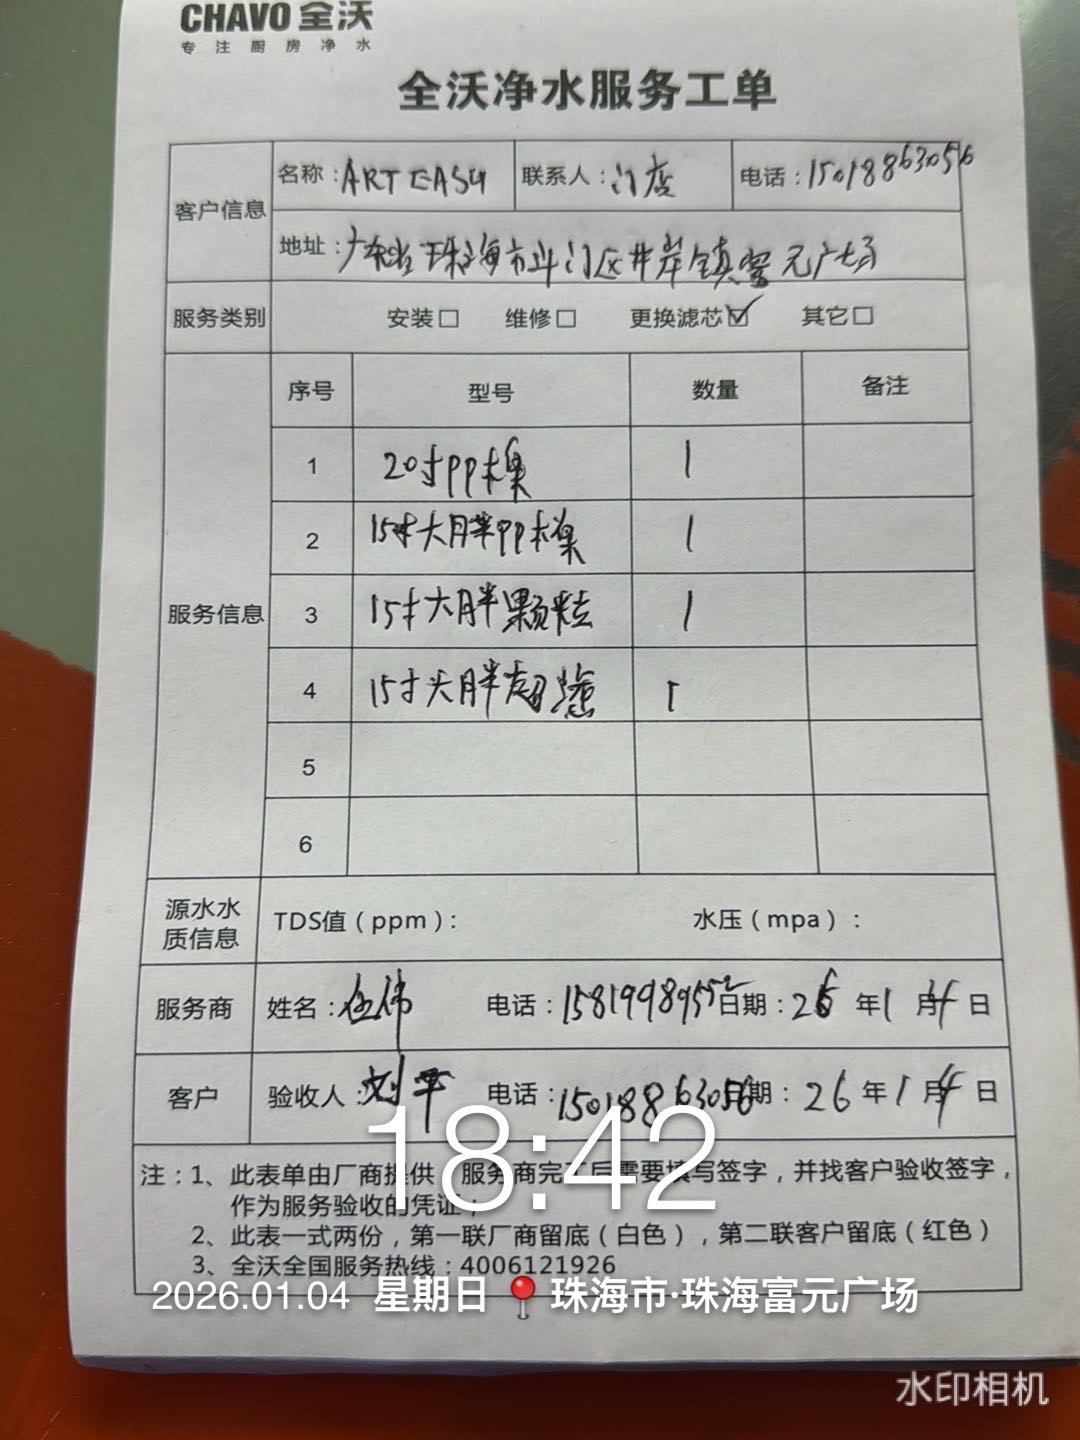 CHAVO 全沃
专注厨房净水
全沃净水服务工单
客户信息 名称：ART EASY 联系人：门店 电话：15018863056
地址：广东省珠海市斗门区井岸镇富元广场
服务类别 安装□ 维修□ 更换滤芯☑ 其它□
服务信息 序号 型号 数量 备注
1 20寸PP棉 1
2 15寸大胖PP棉 1
3 15寸大胖颗粒 1
4 15寸大胖超滤 1
5
6
源水水质信息 TDS值（ppm）： 水压（mpa）：
服务商 姓名：伍伟 电话：15819989552 日期：26年1月4日
客户 验收人：刘平 电话：15018863056 日期：26年1月4日
18:42
注：1、此表单由厂商提供，服务商完工后需要填写签字，并找客户验收签字，
作为服务验收的凭证；
2、此表一式两份，第一联厂商留底（白色），第二联客户留底（红色）
3、全沃全国服务热线：4006121926
2026.01.04 星期日 珠海市·珠海富元广场
水印相机